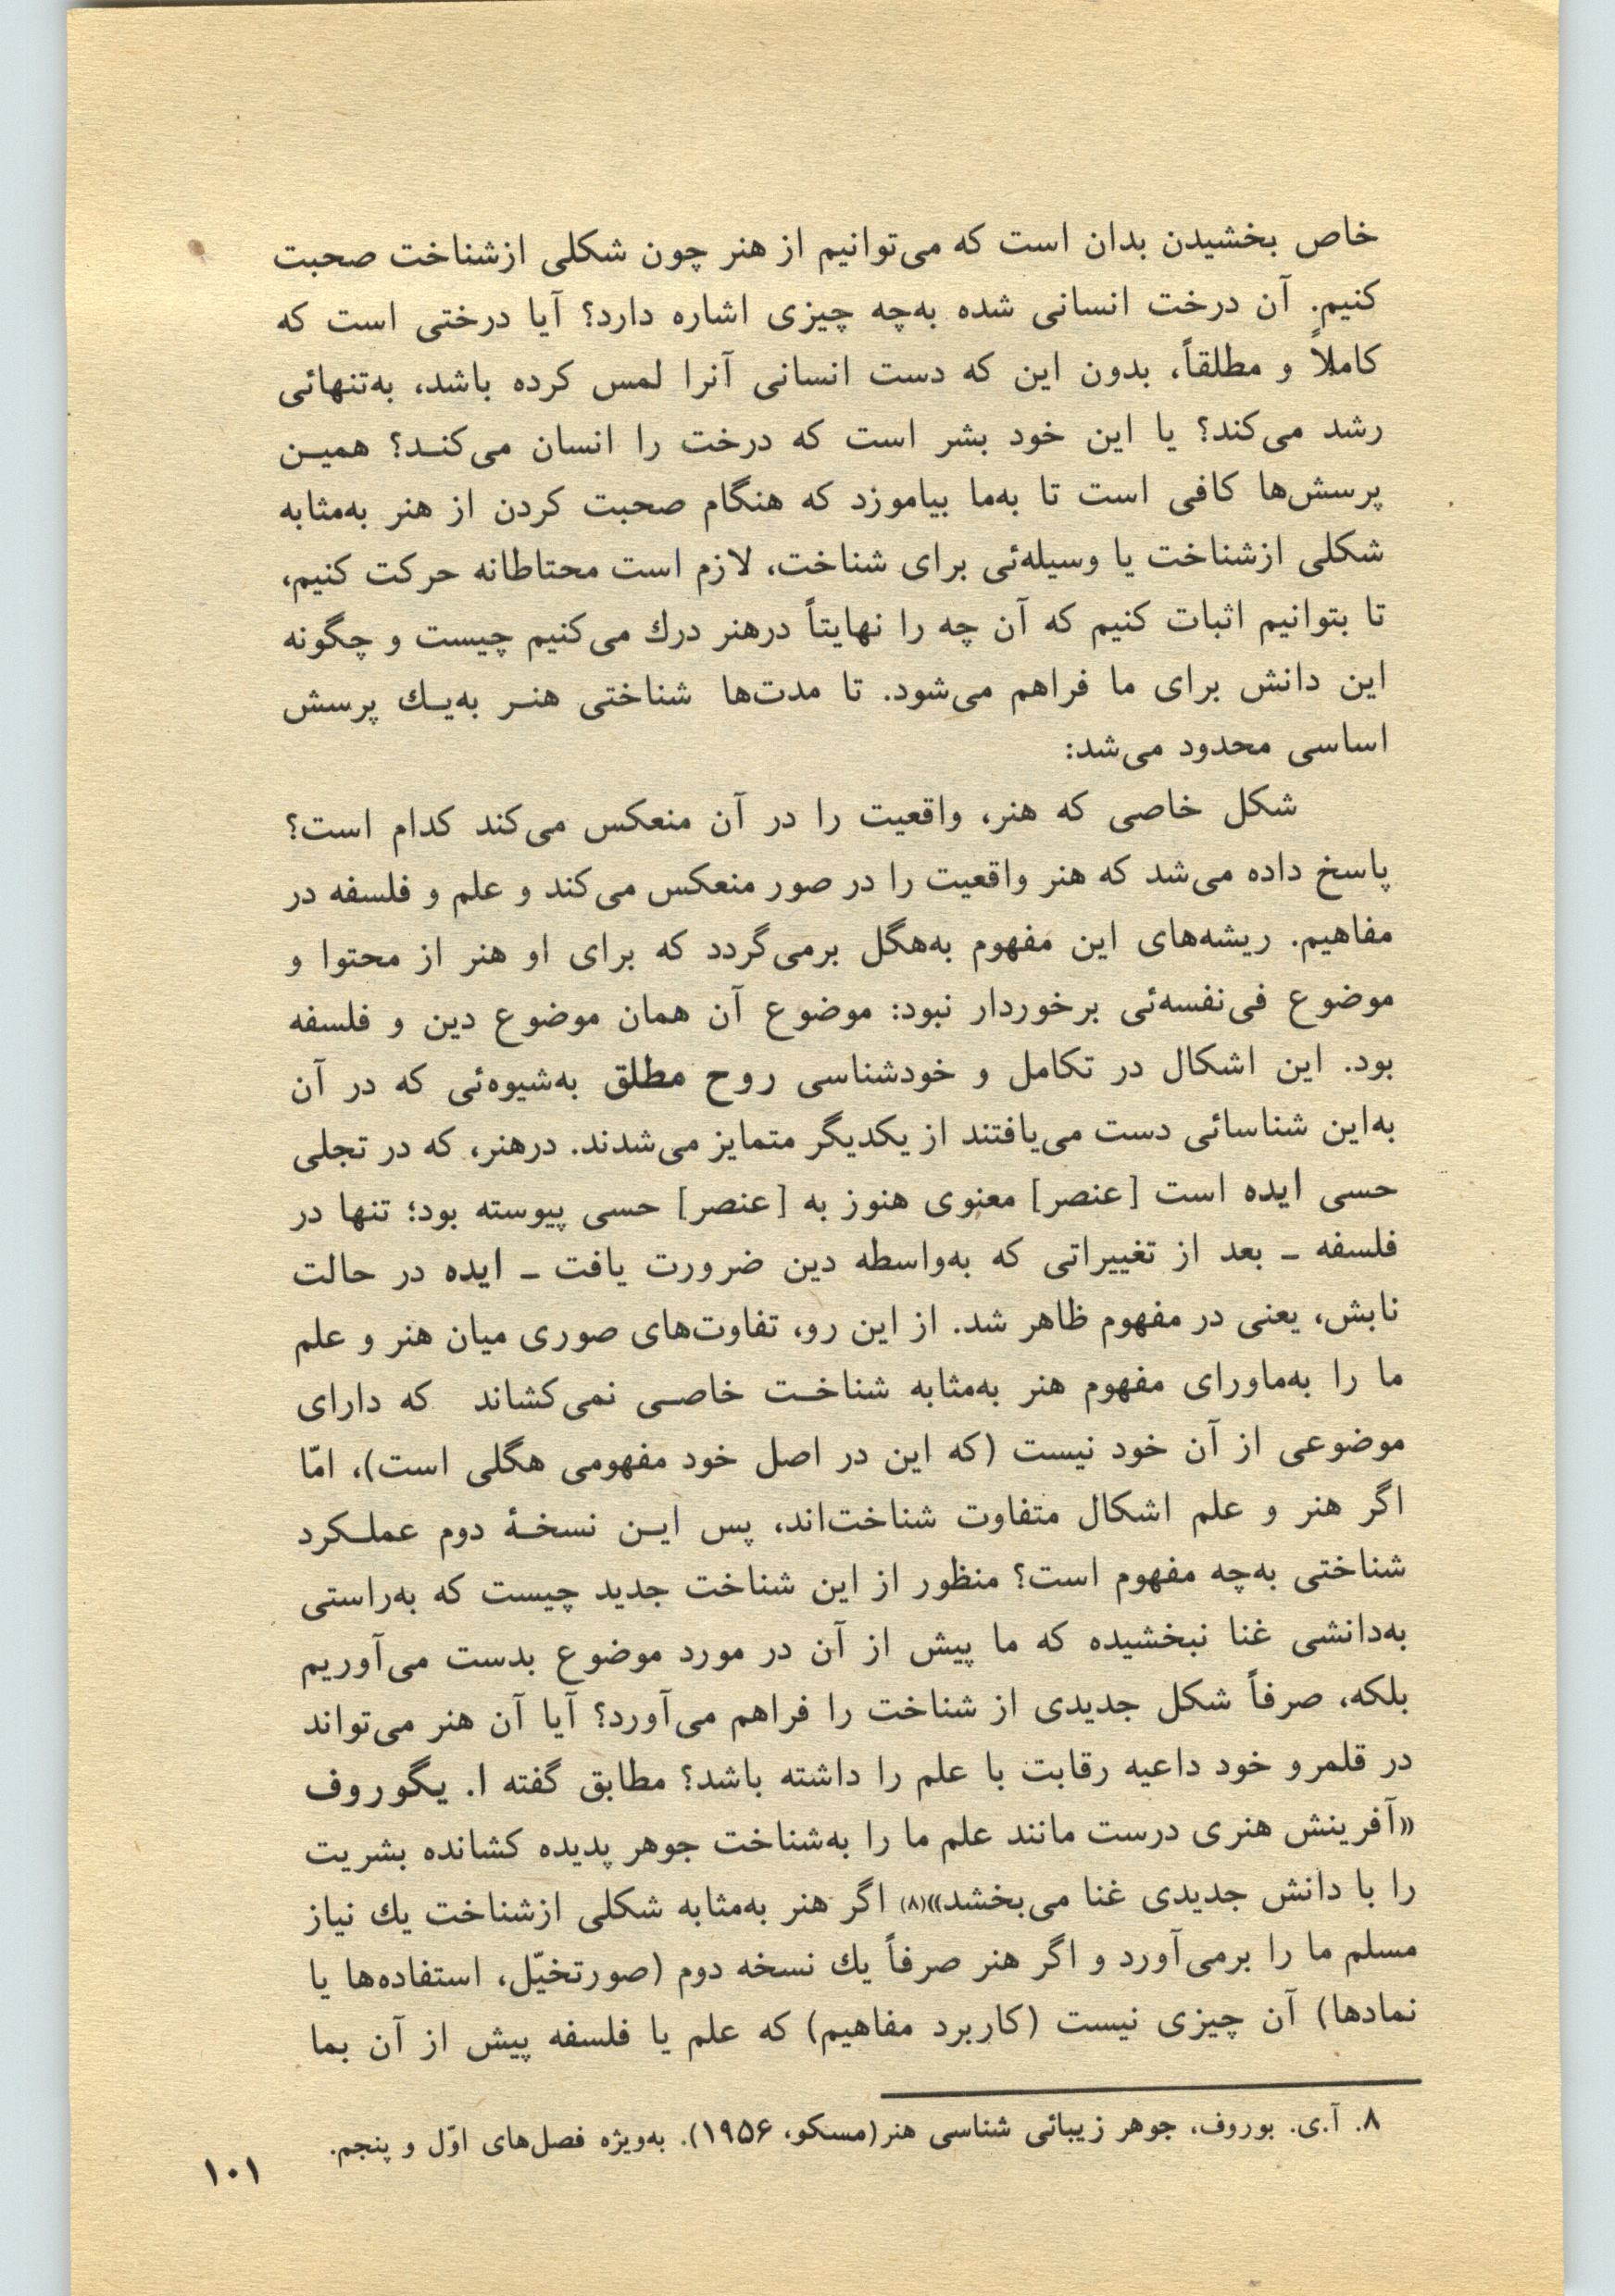 خاص بخشیدن بدان است که می‌توانیم از هنر چون شکلی ازشناخت صحبت
کنیم. آن درخت انسانی شده به‌چه چیزی اشاره دارد؟ آیا درختی است که
کاملاً و مطلقاً، بدون این که دست انسانی آنرا لمس کرده باشد، به‌تنهائی
رشد می‌کند؟ یا این خود بشر است که درخت را انسان می‌کنـد؟ همیـن
پرسش‌ها کافی است تا به‌ما بیاموزد که هنگام صحبت کردن از هنر به‌مثابه
شکلی ازشناخت یا وسیله‌ئی برای شناخت، لازم است محتاطانه حرکت کنیم،
تا بتوانیم اثبات کنیم که آن چه را نهایتاً درهنر درك می‌کنیم چیست و چگونه
این دانش برای ما فراهم می‌شود. تا مدت‌ها شناختی هنـر به‌یـك پرسش
اساسی محدود می‌شد:
شکل خاصی که هنر، واقعیت را در آن منعکس می‌کند کدام است؟
پاسخ داده می‌شد که هنر واقعیت را در صور منعکس می‌کند و علم و فلسفه در
مفاهیم. ریشه‌های این مفهوم به‌هگل برمی‌گردد که برای او هنر از محتوا و
موضوع فی‌نفسه‌ئی برخوردار نبود: موضوع آن همان موضوع دین و فلسفه
بود. این اشکال در تکامل و خودشناسی روح مطلق به‌شیوه‌ئی که در آن
به‌این شناسائی دست می‌یافتند از یکدیگر متمایز می‌شدند. درهنر، که در تجلی
حسی ایده است [عنصر] معنوی هنوز به [عنصر] حسی پیوسته بود؛ تنها در
فلسفه ـ بعد از تغییراتی که به‌واسطه دین ضرورت یافت ـ ایده در حالت
نابش، یعنی در مفهوم ظاهر شد. از این رو، تفاوت‌های صوری میان هنر و علم
ما را به‌ماورای مفهوم هنر به‌مثابه شناخـت خاصـی نمی‌کشاند که دارای
موضوعی از آن خود نیست (که این در اصل خود مفهومی هگلی است)، امّا
اگر هنر و علم اشکال متفاوت شناخت‌اند، پس ایـن نسخـۀ دوم عملـکرد
شناختی به‌چه مفهوم است؟ منظور از این شناخت جدید چیست که به‌راستی
به‌دانشی غنا نبخشیده که ما پیش از آن در مورد موضوع بدست می‌آوریم
بلکه، صرفاً شکل جدیدی از شناخت را فراهم می‌آورد؟ آیا آن هنر می‌تواند
در قلمرو خود داعیه رقابت با علم را داشته باشد؟ مطابق گفته ا. یگوروف
«آفرینش هنری درست مانند علم ما را به‌شناخت جوهر پدیده کشانده بشریت
را با دانش جدیدی غنا می‌بخشد»(۸) اگر هنر به‌مثابه شکلی ازشناخت یك نیاز
مسلم ما را برمی‌آورد و اگر هنر صرفاً یك نسخه دوم (صورتخیّل، استفاده‌ها یا
نمادها) آن چیزی نیست (کاربرد مفاهیم) که علم یا فلسفه پیش از آن بما
۸. آ.ی. بوروف، جوهر زیبائی شناسی هنر(مسکو، ۱۹۵۶). به‌ویژه فصل‌های اوّل و پنجم.
۱۰۱